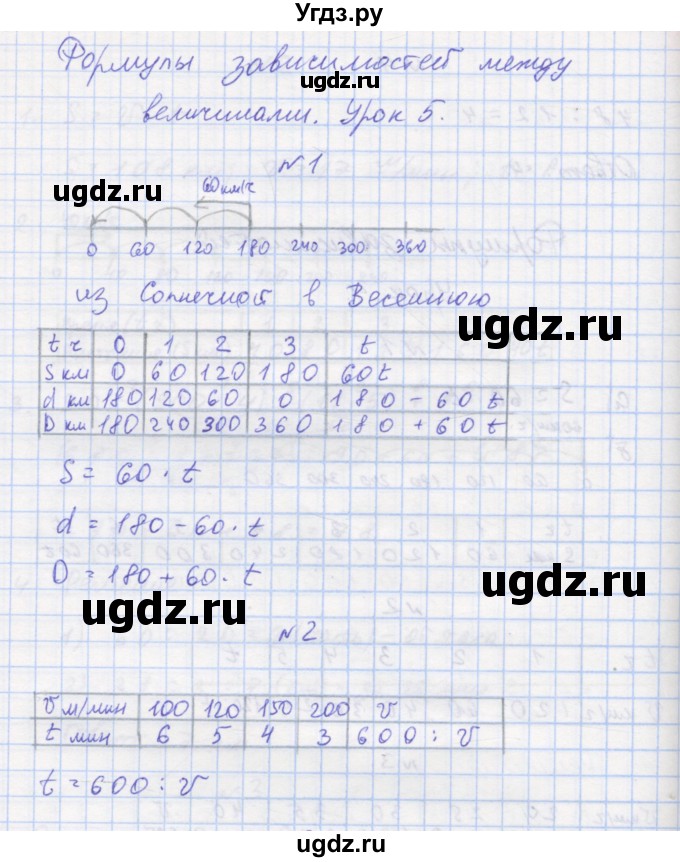 Угдз.ру
Формулы зависимостей между
ugdz.ru
величинами. Урок 5.
№1
ugdz.ru
60 км/ч
0 60 120 180 240 300 360
из Солнечной в Весеннюю
ugdz.ru
t ч 0 1 2 3 t
S км 0 60 120 180 60t
d км 180 120 60 0 180 - 60t
D км 180 240 300 360 180 + 60t
S = 60 · t
ugdz.ru
d = 180 - 60 · t
D = 180 + 60 · t
ugdz.ru
№2
v м/мин 100 120 150 200 v
t мин 6 5 4 3 600 : v
t = 600 : v
ugdz.ru
Угдз.ру